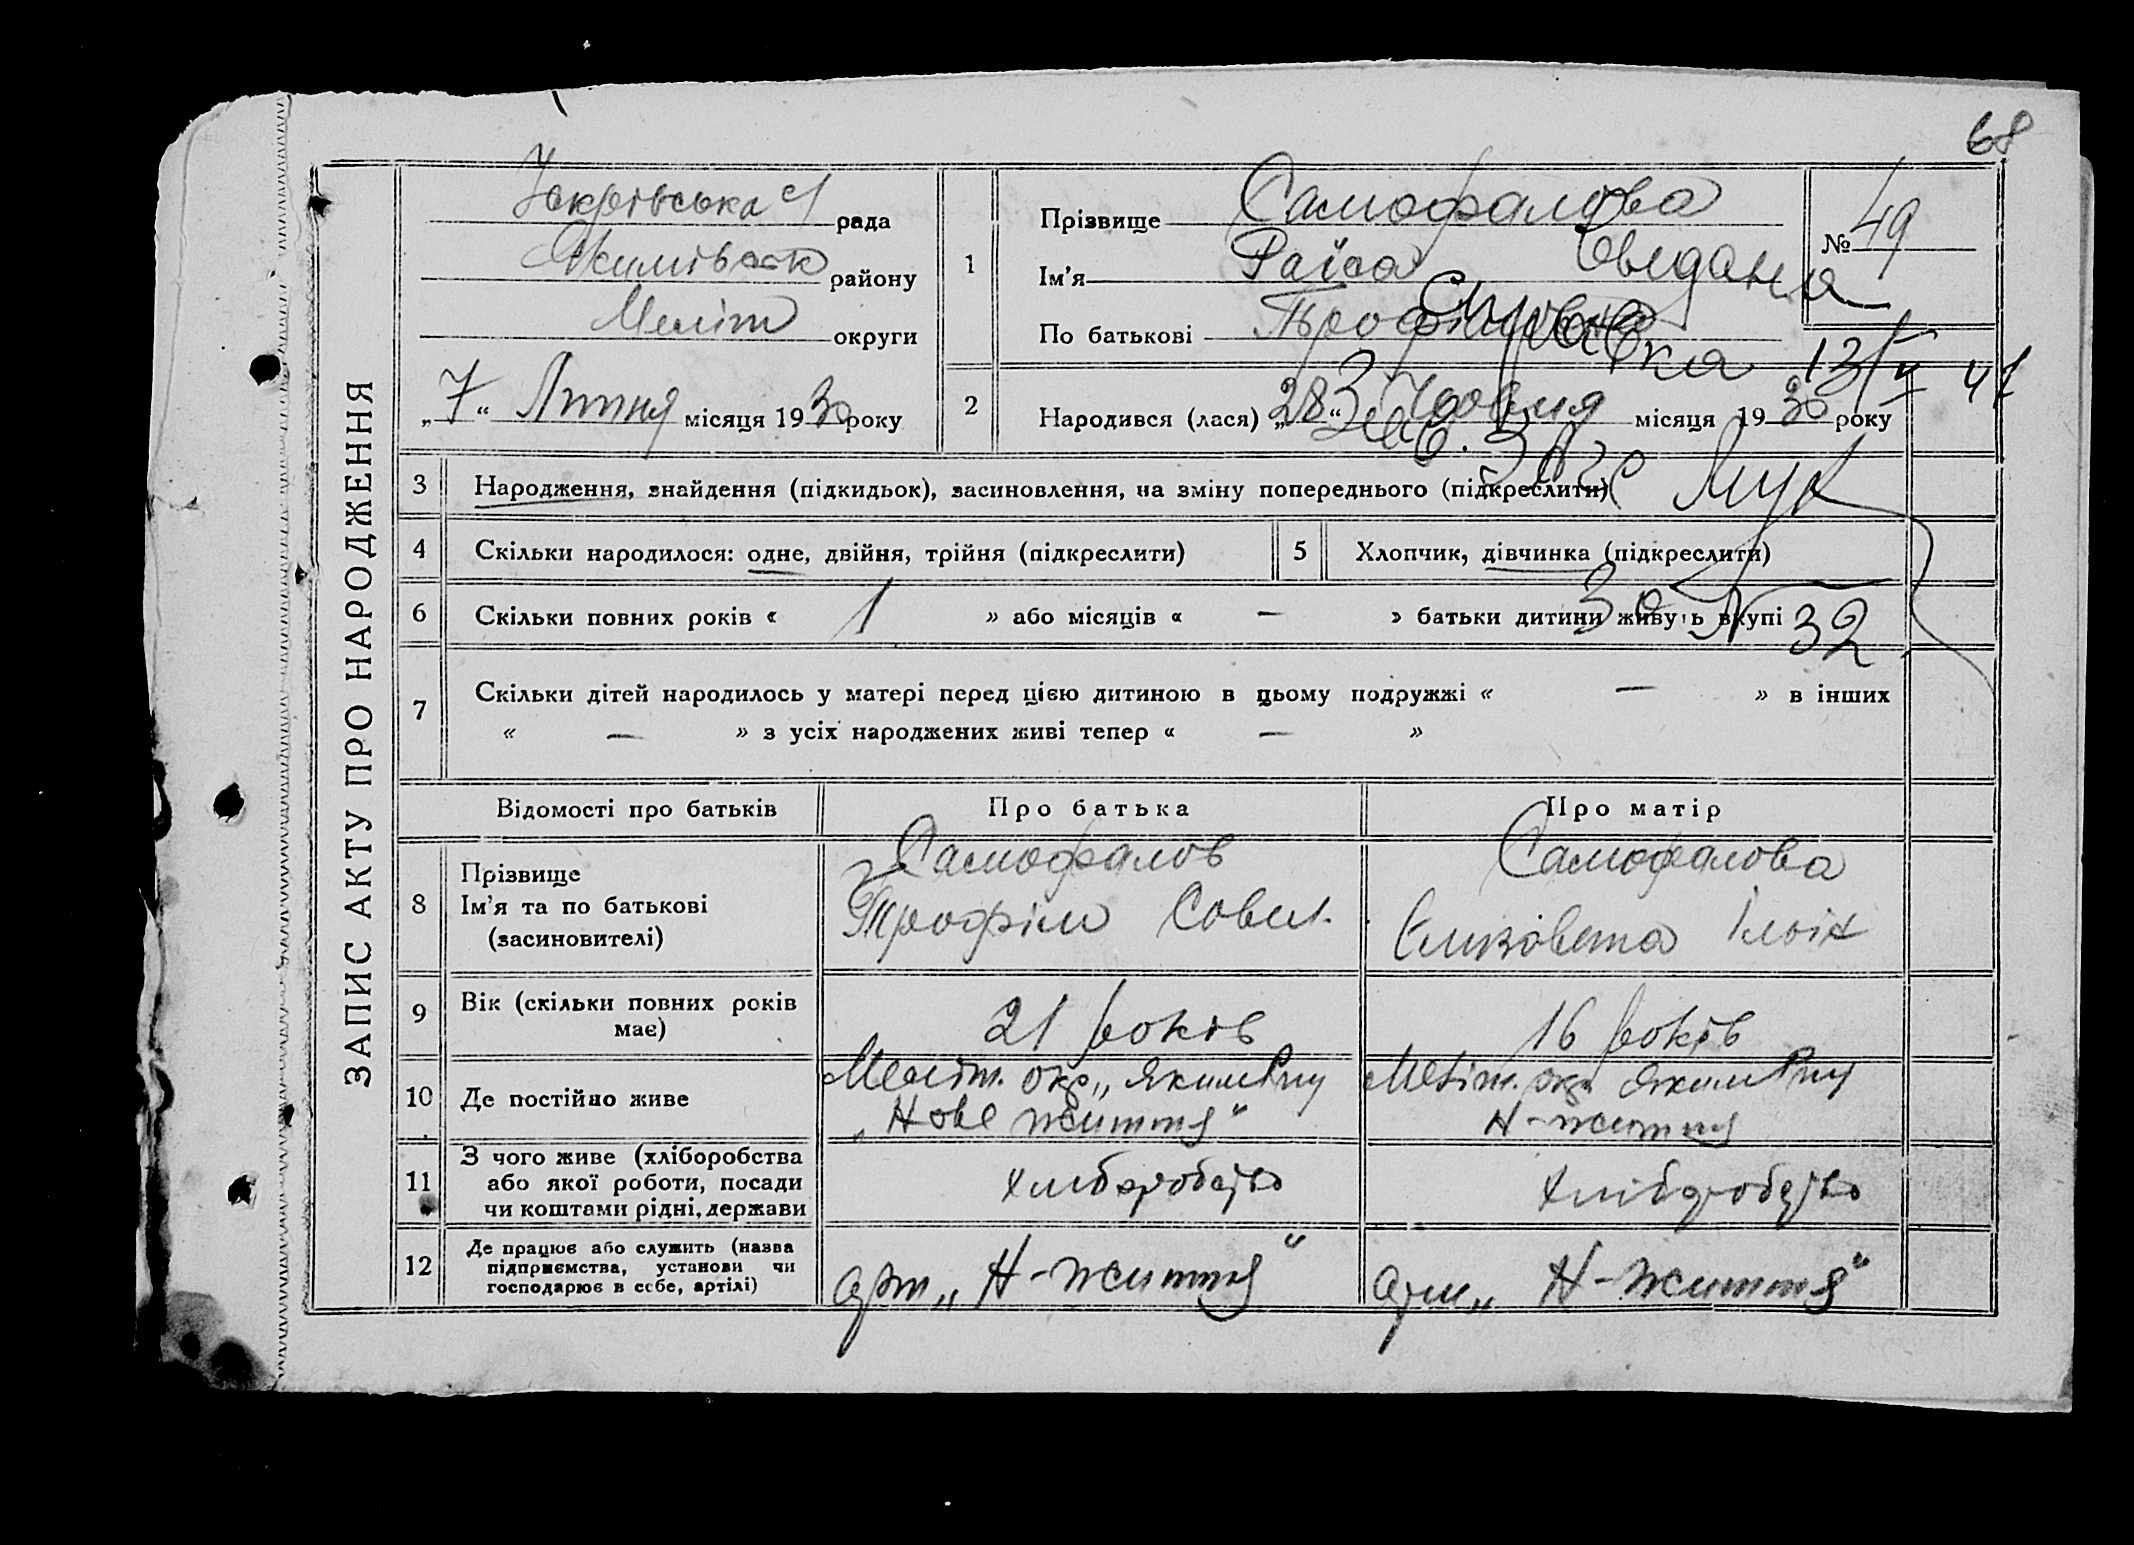 68
ЗАПИС АКТУ ПРО НАРОДЖЕННЯ
рада
Якимівськ району
Меліт округи
„7“ Липня місяця 1930 року
1
Прізвище Самофалова
Ім'я Раїса
По батькові Трофимовна
№ 49
Видана
справка
13/V 41
2
Народився (лася) „28“ Червня місяця 1930 року
Зав. ЗАГС
3 Народження, знайдення (підкидьок), засиновлення, на зміну попереднього (підкреслити)
4 Скільки народилося: одне, двійня, трійня (підкреслити)
5 Хлопчик, дівчинка (підкреслити)
6 Скільки повних років « 1 » або місяців « — » батьки дитини живуть вкупі
За № 32
7 Скільки дітей народилось у матері перед цією дитиною в цьому подружжі « — » в інших
« — » з усіх народжених живі тепер « — »
Відомості про батьків Про батька Про матір
8 Прізвище
Ім'я та по батькові
(засиновителі)
Самофалов
Трофім Савел.
Самофалова
Єлизавета
9 Вік (скільки повних років
має)
21 років
16 років
10 Де постійно живе
Меліт. окр„ Яким Р-ну
„Нове життя“
Меліт. окр. Яким Р-ну
Н-життя
11 З чого живе (хліборобства
або якої роботи, посади
чи коштами рідні, держави
хліборобство
хліборобство
12 Де працює або служить (назва
підприємства, установи чи
господарює в себе, артілі)
арт„ Н-життя“
арт„ Н-життя“